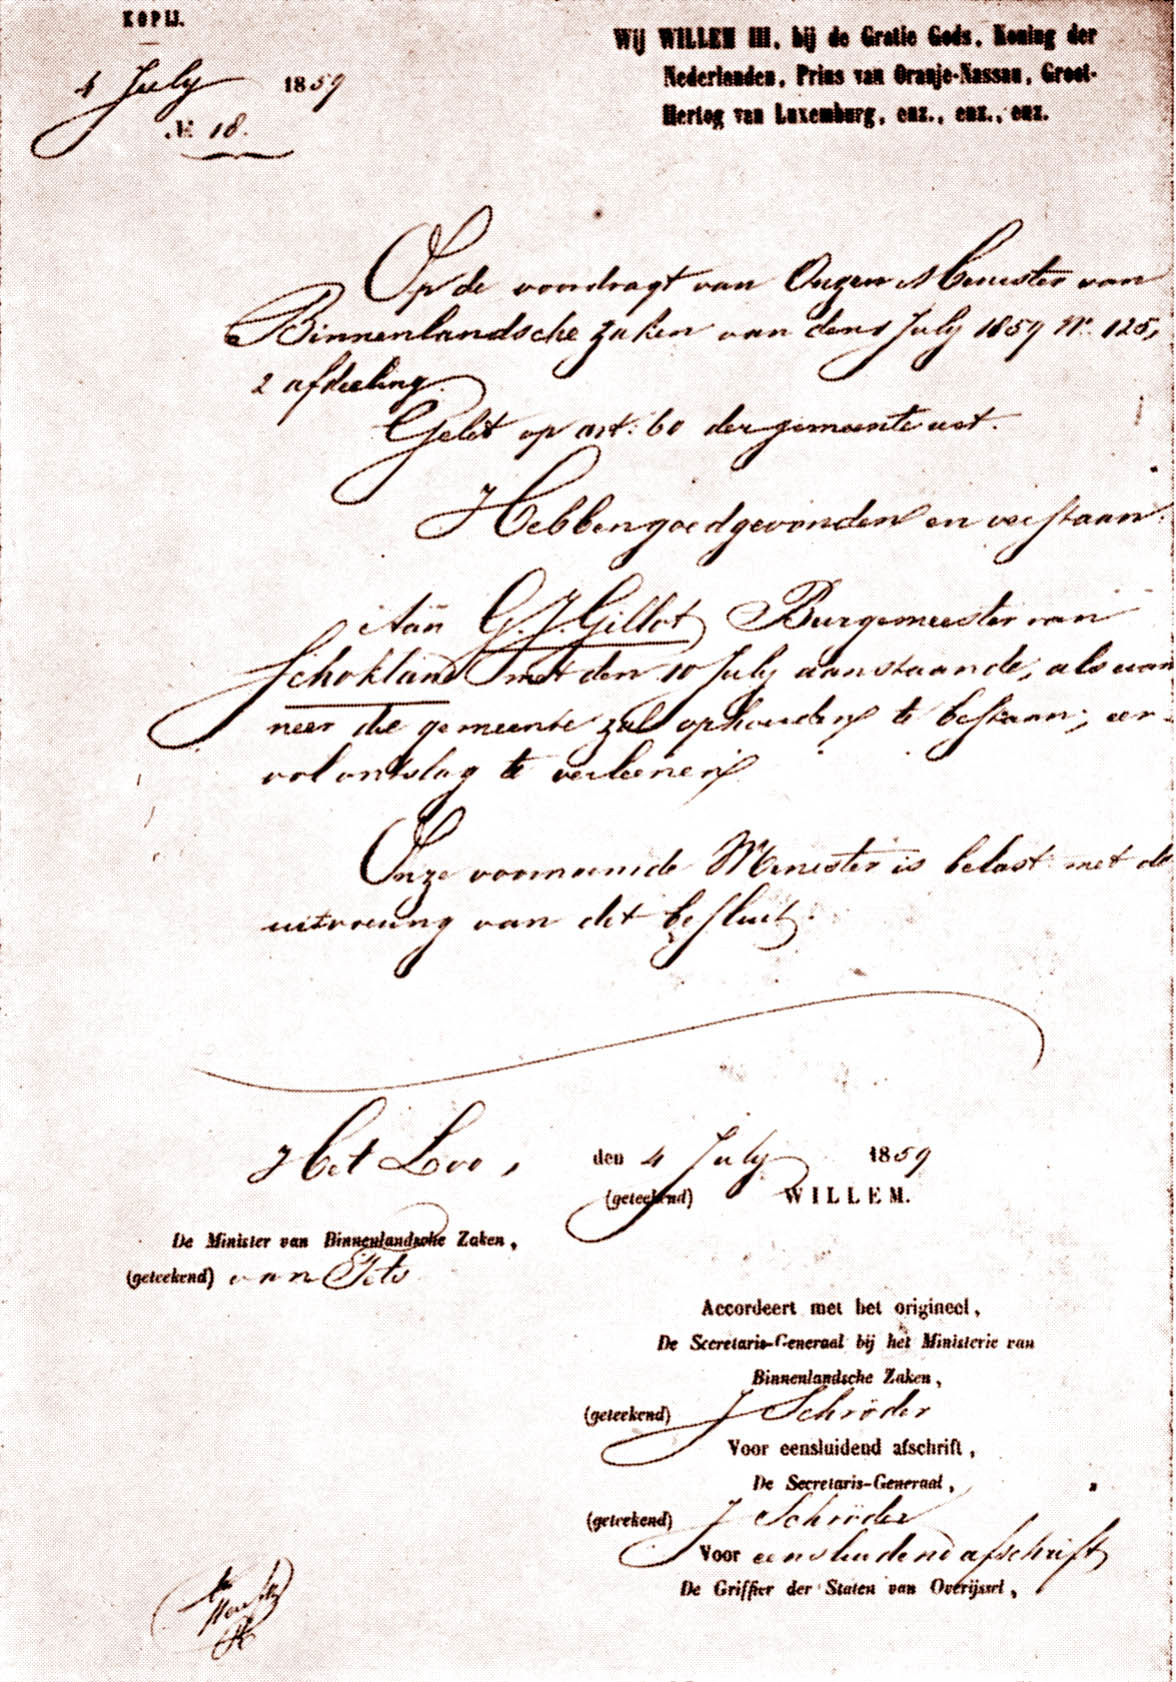 KOPIJ.
4 July 1859
№ 18.
Wij WILLEM III, bij de Gratie Gods, Koning der
Nederlanden, Prins van Oranje-Nassau, Groot-
Hertog van Luxemburg, enz., enz., enz.
Op de voordragt van Onzen Minister van
Binnenlandsche zaken van den 1 July 1859 No. 125,
2 afdeeling.
Gelet op art: 60 der gemeentewet.
Hebben goedgevonden en verstaan:
Aan G. J. Gillot, Burgemeester van
Schokland met den 10 July aanstaande, als wan
neer die gemeente zal ophouden te bestaan, eer-
vol ontslag te verleenen
Onze voornoemde Minister is belast met de
uitvoering van dit besluit.
Het Loo, den 4 July 1859
(geteekend) WILLEM.
De Minister van Binnenlandsche Zaken,
(geteekend) van Tets
Accordeert met het origineel,
De Secretaris-Generaal bij het Ministerie van
Binnenlandsche Zaken,
(geteekend) J Schröder
Voor eensluidend afschrift,
De Secretaris-Generaal,
(geteekend) J Schröder
Voor eensluidend afschrift
De Griffier der Staten van Overijssel,